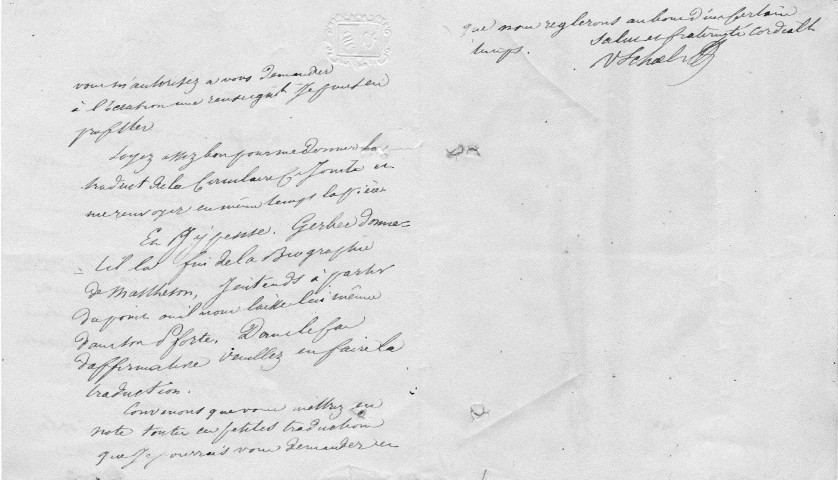 vous m'autorisez a vous demander
à l'occasion une renseignt. Je puis en
profiter
Soyez assez bon pour me donner la
traduct de la Circulaire Ci Jointe et
me renvoyer en même temps la pièce
En y pense. Gerber donne-
-til la fin de la Biographie
de Mattheson, J'entends à partir
du point où il nous laisse lui même
dans ton
d'affirmative veuillez en faire la
traduction.
Convenons que vous mettrez en
note toutes ces petites traduction
que Je pourrais vous demander et
que nous reglerons au bout d'un Certain
temps.
Salut et fraternité Cordialt
V Schoelcher